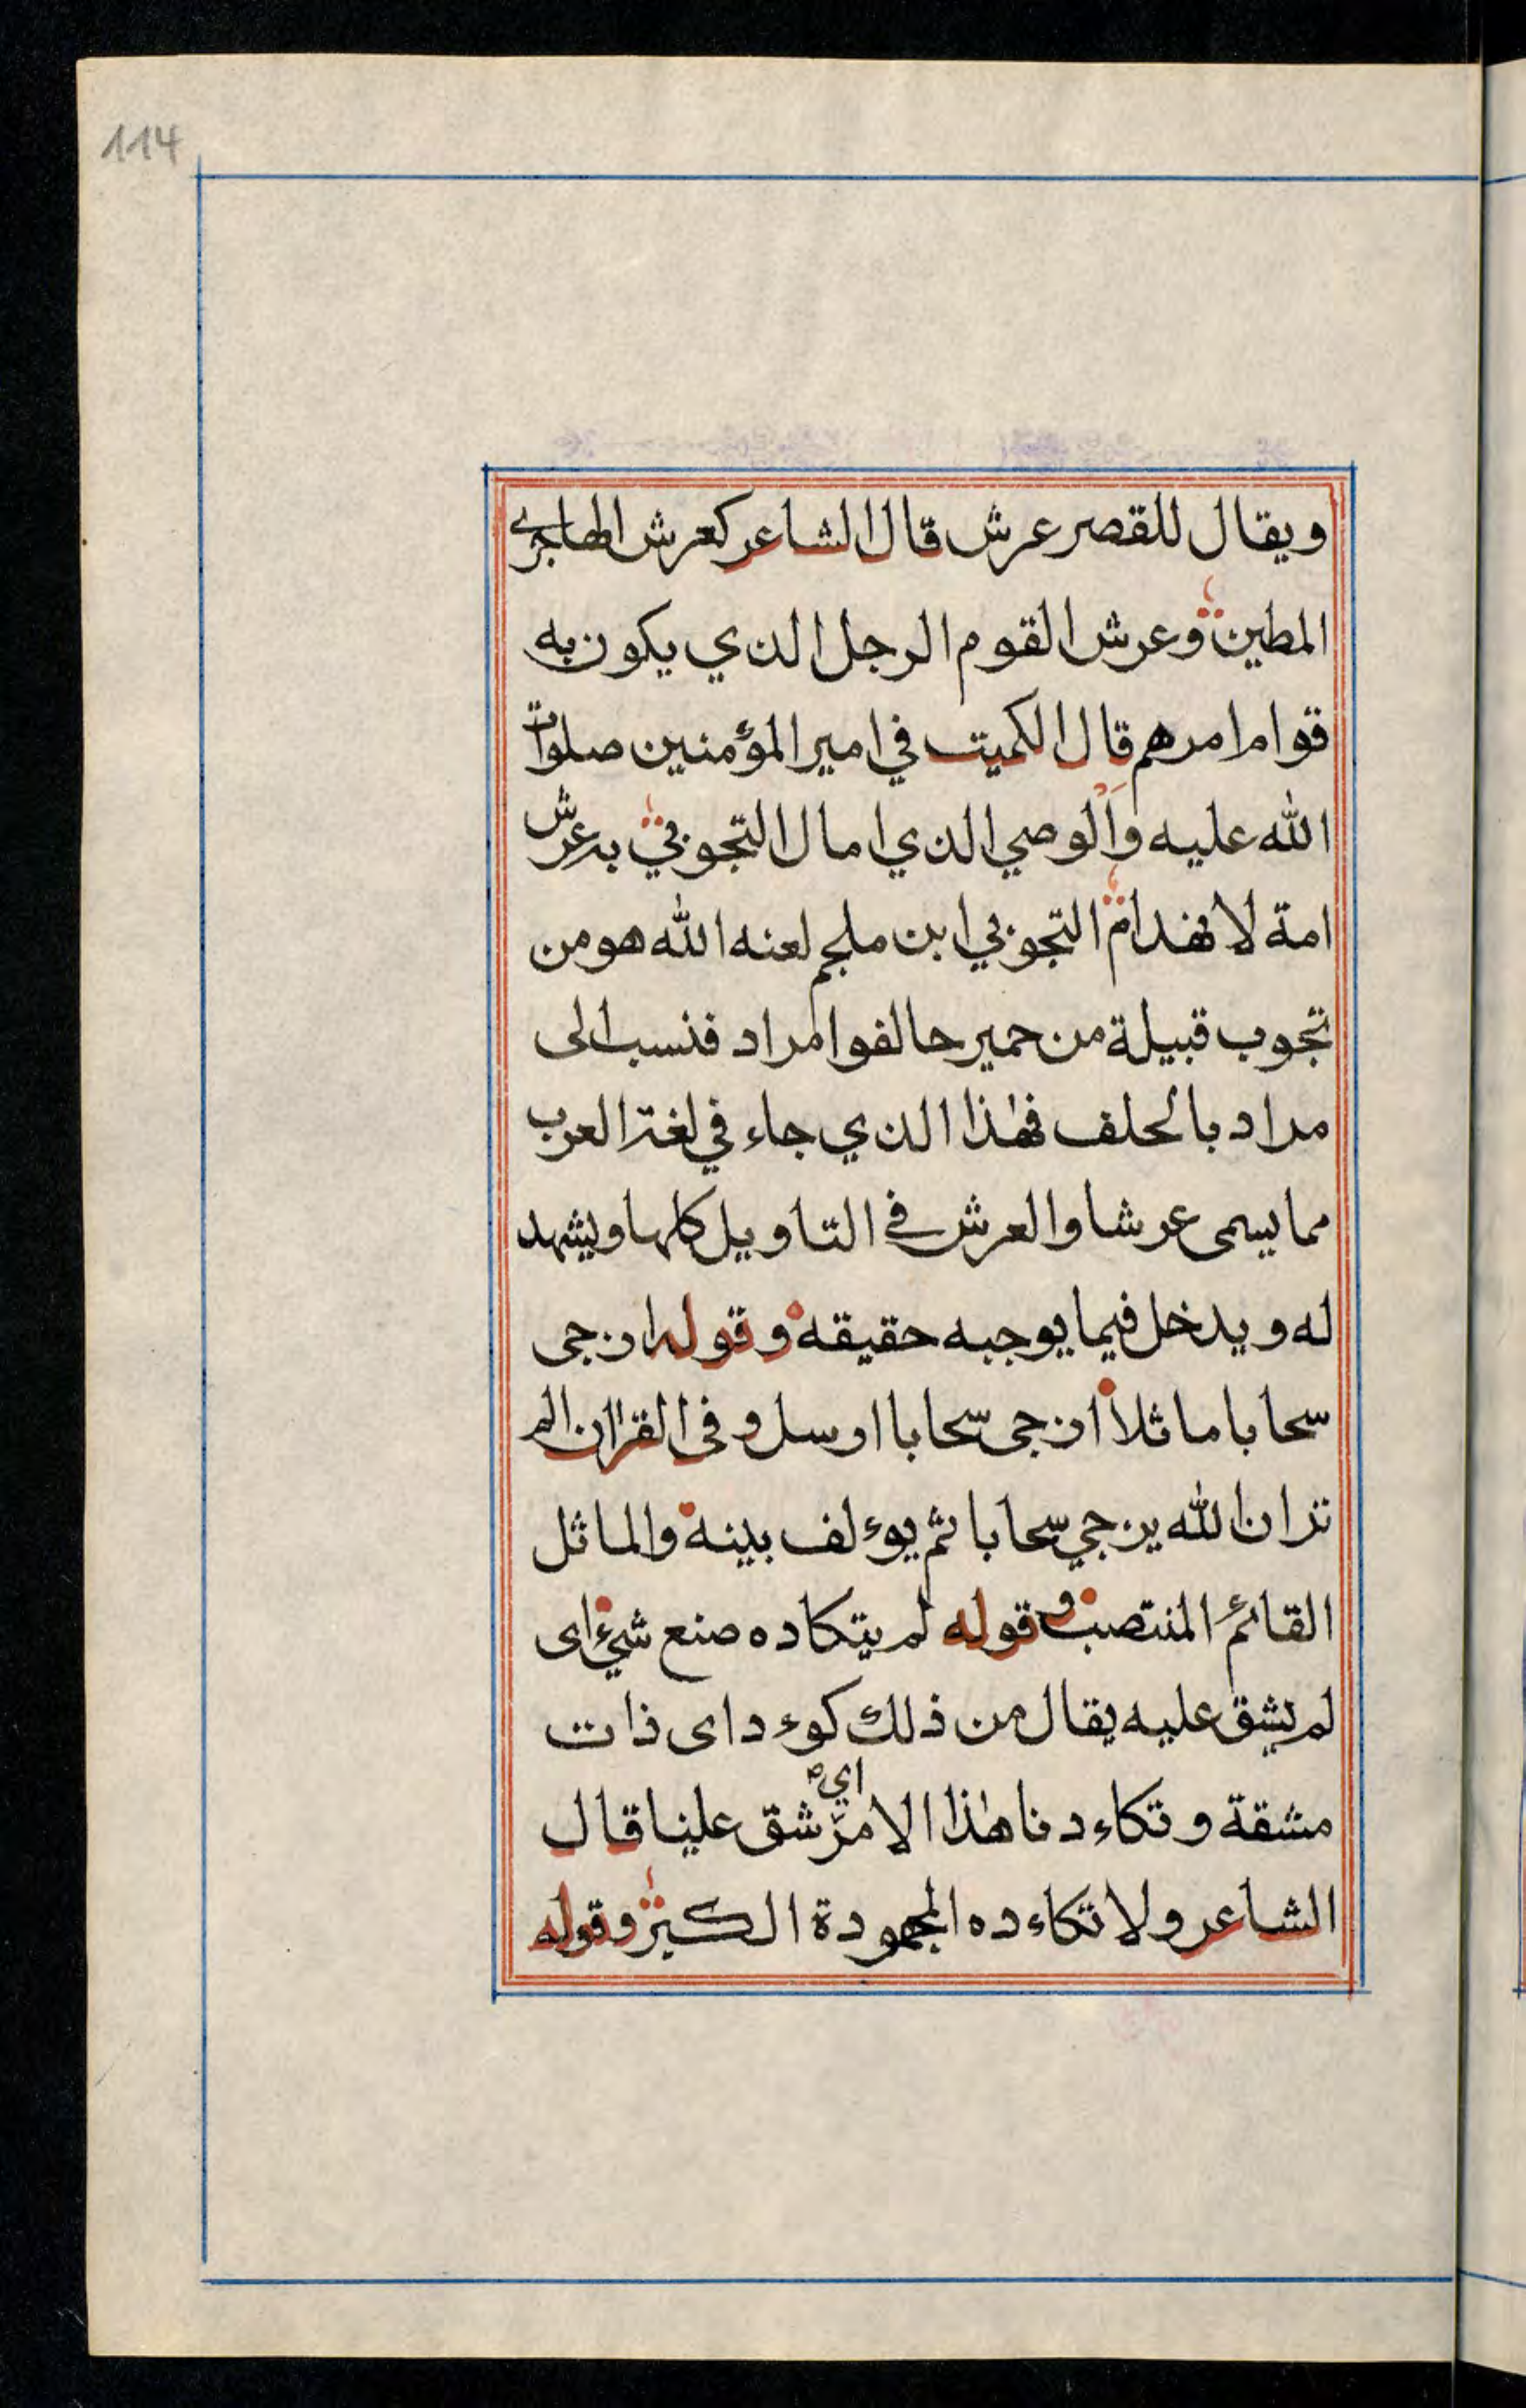 114
ويقال للقصر عرش قال الشاعر كعرش الهاجري
المطين وعرش القوم الرجل الذي يكون به
قوام امرهم قال الكميت في امير المؤمنين صلوات
الله عليه والوصي الذي امال التجوبي به عرش
امة لانهدام التجوبي ابن ملجم لعنه الله هو من
تجوب قبيلة من حمير حالفوا مراد فنسب الى
مراد بالحلف فهذا الذي جاء في لغة العرب
مما يسمى عرشا والعرش في التاويل كلها ويشهد
له ويدخل فيما يوجبه حقيقه وقوله ازجى
سحابا ماثلا ازجى سحابا ارسل وفى القران الم
تر ان الله يزجي سحابا ثم يوءلف بينه والماثل
القائم المنتصب وقوله لم يتكاده صنع شيء اى
لم يشق عليه يقال من ذلك كوءد اى ذات
مشقة وتكاءدنا هذا الامر اي شق علينا قال
الشاعر ولا تكاءده المجهودة الكبر وقوله